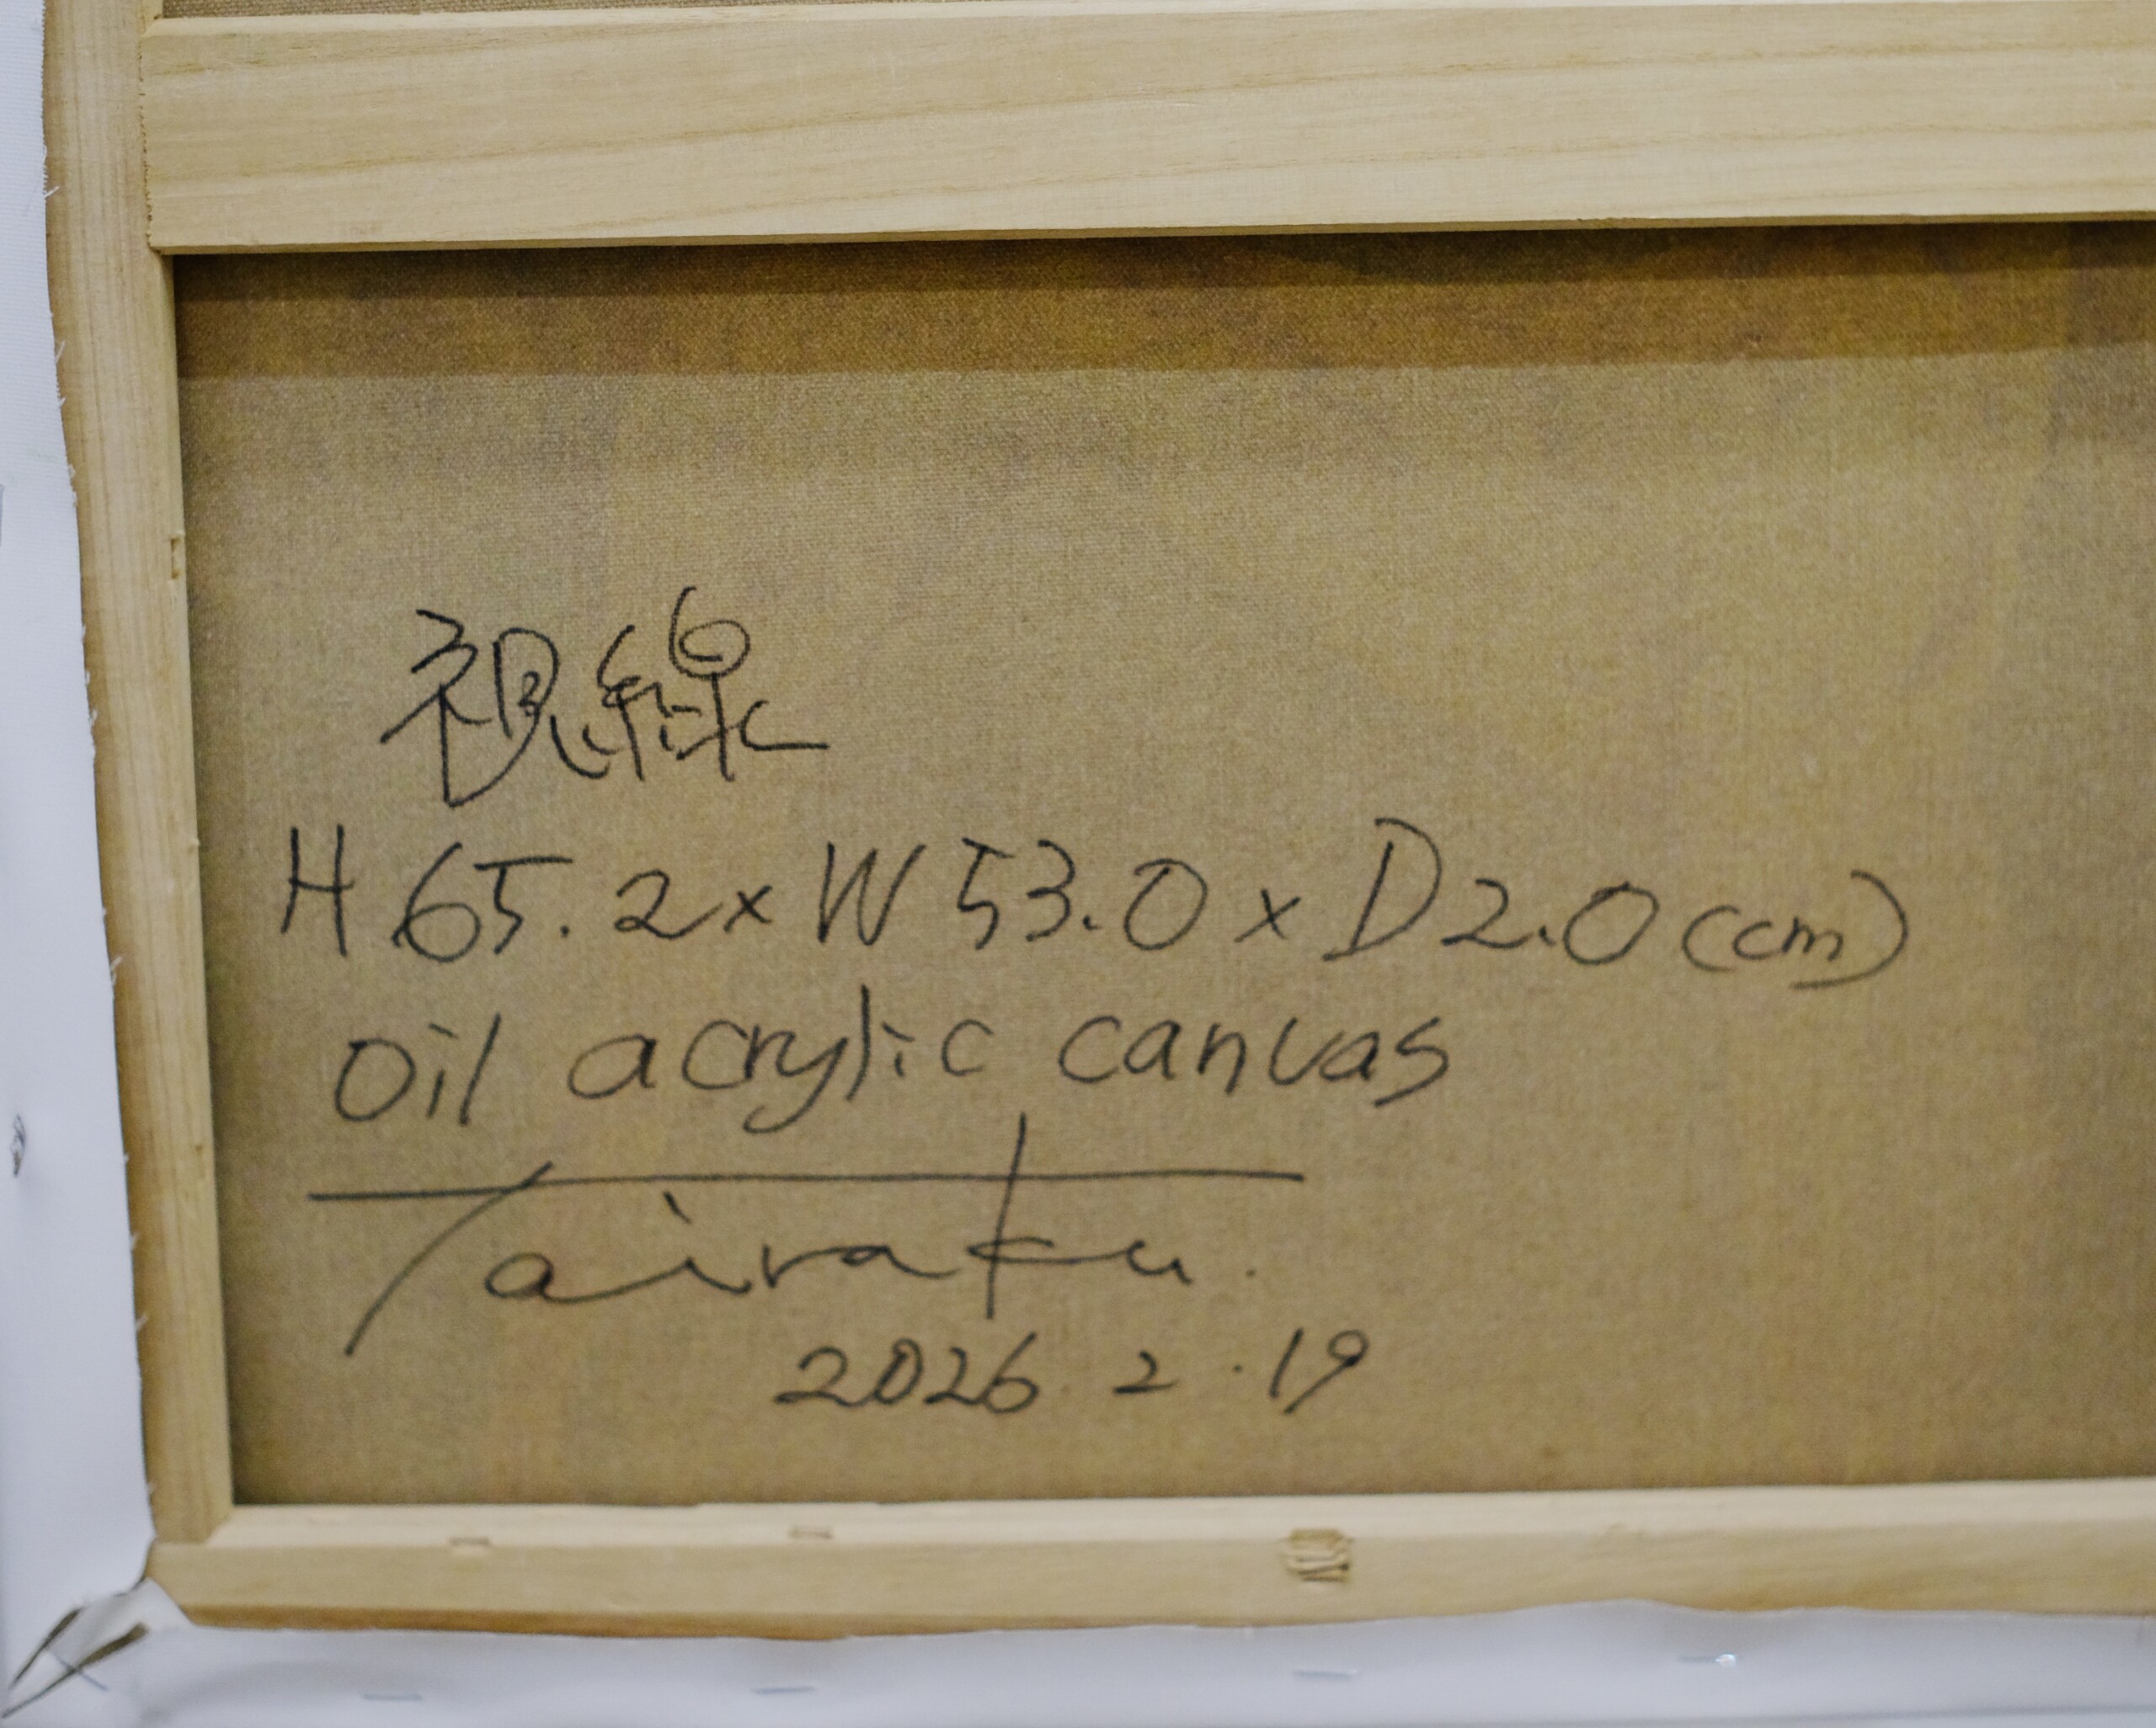 視線
H 65.2 x W 53.0 x D 2.0 (cm)
oil acrylic canvas
Tairaku.
2026.2.19